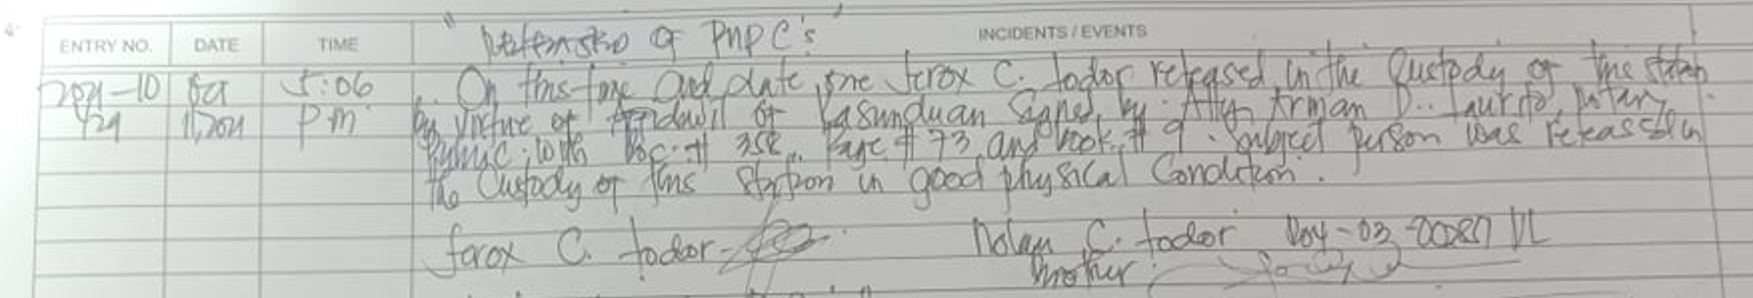 ENTRY NO. DATE TIME INCIDENTS / EVENTS
of PNPC's
2021-10 Oct 5:06 On this time and date, one Jerox C. Todor released in the Custody of this station
429 11, 2021 Pm by virtue of Affidavit of Kasunduan signed by Atty Arman D.. Laurito, notary
Public with Doc. # 358, Page # 73, and book # 9. Subject person was released in
the Custody of this Station in good physical Condition.
Jerox C. Todor Nolan C. Todor
Brother